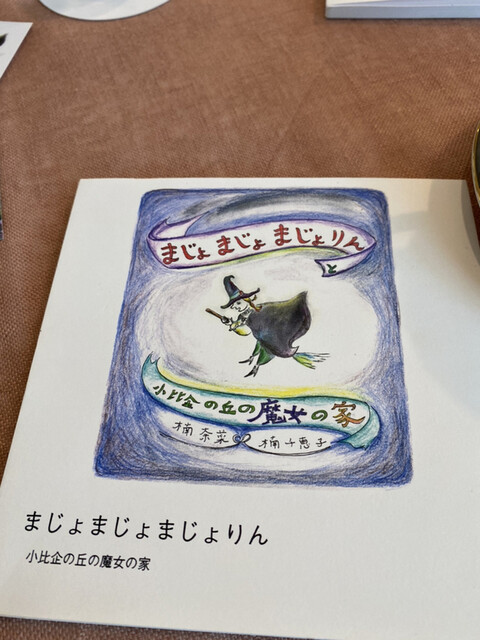 まじょまじょまじょりん
と
小比企の丘の魔女の家
楠奈菜 楠千恵子
まじょまじょまじょりん
小比企の丘の魔女の家